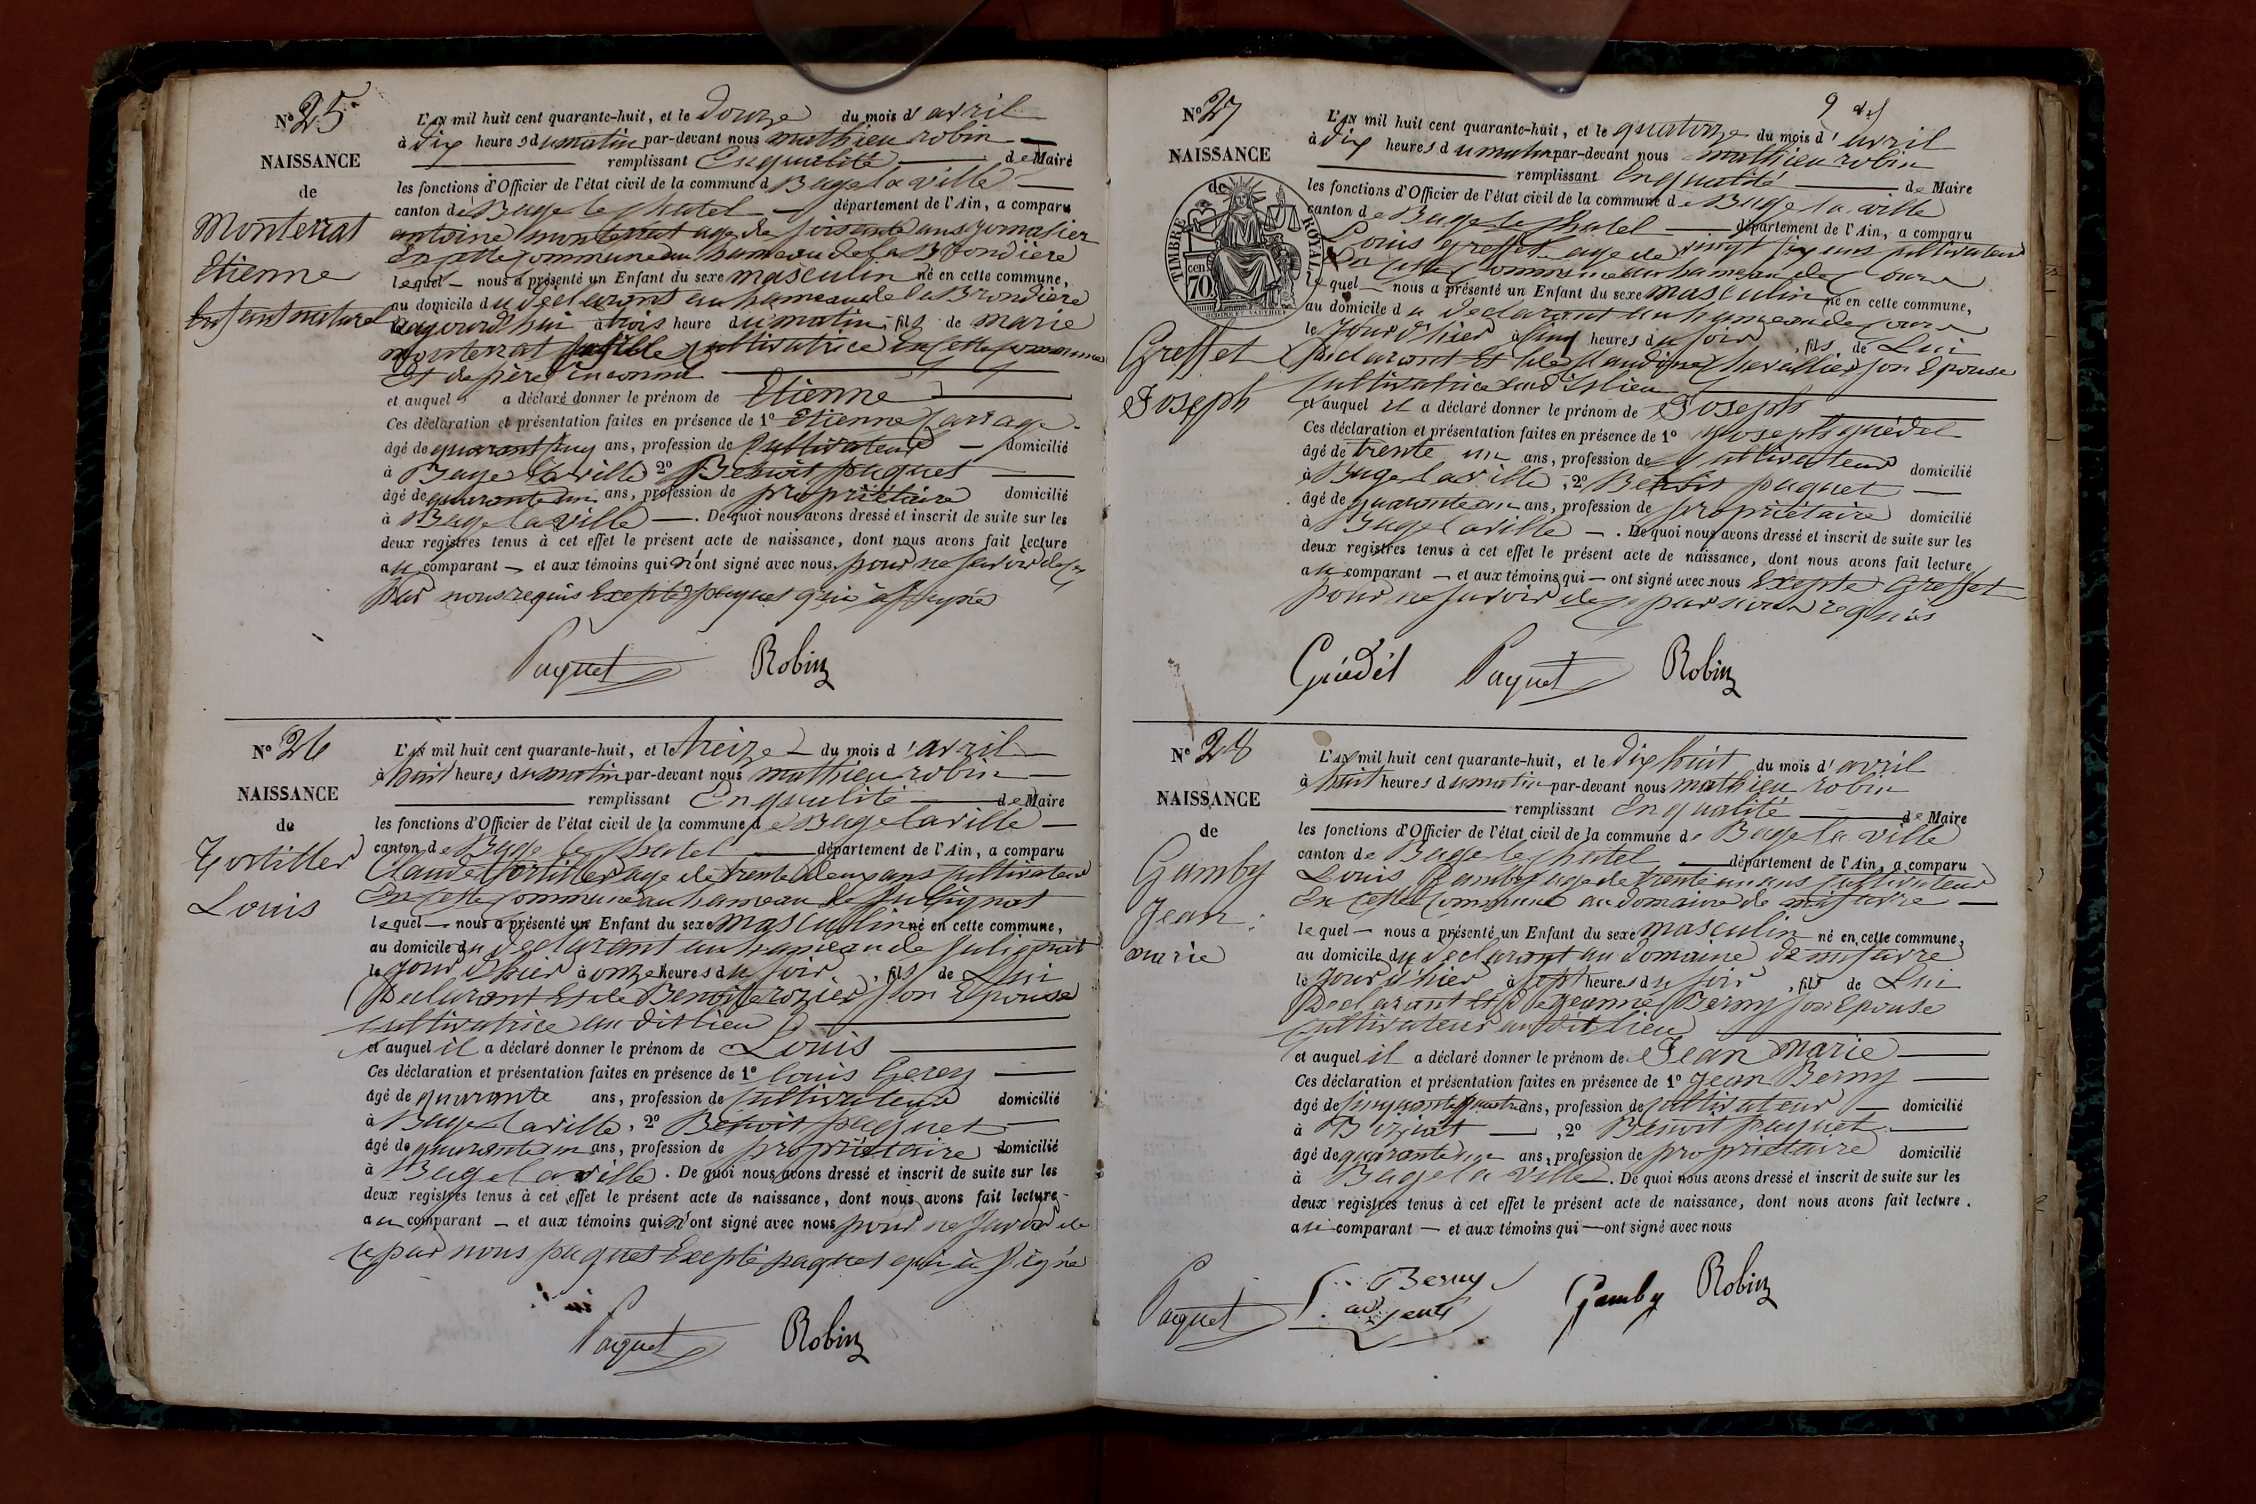 N° 25
NAISSANCE
de
Monterrat
Etienne
Enfant naturel
L'AN mil huit cent quarante-huit, et le Douze du mois d' avril
à dix heures du matin par-devant nous mathieu robin
remplissant En qualité de Maire
les fonctions d'Officier de l'état civil de la commune d Bage la ville
canton de Bage le chatel département de l'Ain, a comparu
antoine monterrat age de soisante ans jornalier
En cette commune au hameau de la Brondière
lequel nous a présenté un Enfant du sexe masculin né en cette commune,
au domicile du declarant au hameau de la Brondiere
aujourd'hui à trois heure du matin, fils de marie
monterrat fille cultivatrice En cette commune
Et de père inconnu
et auquel a déclaré donner le prénom de Etienne
Ces déclaration et présentation faites en présence de 1° Etienne
âgé de ans, profession de Cultivateur domicilié
à Bage la ville 2° Benoit paquet
âgé de quarante un ans, profession de propriétaire domicilié
à Bage la ville . De quoi nous avons dressé et inscrit de suite sur les
deux registres tenus à cet effet le présent acte de naissance, dont nous avons fait lecture
au comparant et aux témoins qui n'ont signé avec nous, pour ne savoir de ce
par nous requis Exepté paquet qui à signé
Paquet Robin
N° 26
NAISSANCE
de
Tortiller
Louis
L'AN mil huit cent quarante-huit, et le treize du mois d' avril
à huit heures du matin par-devant nous mathieu robin
remplissant En qualité de Maire
les fonctions d'Officier de l'état civil de la commune de Bage la ville
canton de Bage le chatel département de l'Ain, a comparu
Claude Tortiller age de trente deux ans cultivateur
En cette commune au hameau de Julignat
lequel nous a présenté un Enfant du sexe masculin né en cette commune,
au domicile du declarant au hameau de Julignat
le jour d'hier à onze heures du soir, fils de Lui
Declarant Et de Benoite rozier son Epouse
cultivatrice au dit lieu
et auquel il a déclaré donner le prénom de Louis
Ces déclaration et présentation faites en présence de 1° Louis
âgé de quarante ans, profession de cultivateur domicilié
à Bage la ville, 2° Benoit paquet
âgé de quarante un ans, profession de propriétaire domicilié
à Bage la ville. De quoi nous avons dressé et inscrit de suite sur les
deux registres tenus à cet effet le présent acte de naissance, dont nous avons fait lecture
au comparant et aux témoins qui n'ont signé avec nous pour ne savoir de
ce par nous paquet Exepté paquet qui à signé
Paquet Robin
9
N° 27
NAISSANCE
de
TIMBRE ROYAL
cen 70
Greffet
Joseph
L'AN mil huit cent quarante-huit, et le quatorze du mois d' avril
à dix heures du matin par-devant nous mathieu robin
remplissant En qualité de Maire
les fonctions d'Officier de l'état civil de la commune de Bage la ville
canton de Bage le chatel département de l'Ain, a comparu
Louis Greffet age de vingt six ans cultivateur
En cette Commune au hameau de
lequel nous a présenté un Enfant du sexe masculin né en cette commune,
au domicile du declarant au hameau de
le jour d'hier à cinq heures du soir, fils de Lui
Declarant Et de Claudine Chevallier son Epouse
cultivatrice au dit lieu
et auquel il a déclaré donner le prénom de Joseph
Ces déclaration et présentation faites en présence de 1° Joseph guédel
âgé de trente un ans, profession de cultivateur domicilié
à Bage la ville, 2° Benoit paquet
âgé de quarante un ans, profession de propriétaire domicilié
à Bage la ville . De quoi nous avons dressé et inscrit de suite sur les
deux registres tenus à cet effet le présent acte de naissance, dont nous avons fait lecture
au comparant et aux témoins qui ont signé avec nous Exepté Greffet
pour ne savoir de ce par nous requis
Guédél Paquet Robin
N° 28
NAISSANCE
de
Gamby
Jean
marie
L'AN mil huit cent quarante-huit, et le dix huit du mois d' avril
à huit heures du matin par-devant nous mathieu robin
remplissant En qualité de Maire
les fonctions d'Officier de l'état civil de la commune de Bage la ville
canton de Bage le chatel département de l'Ain, a comparu
Louis Gamby age de trente un ans cultivateur
En cette Commune au domaine de
lequel nous a présenté un Enfant du sexe masculin né en cette commune,
au domicile du declarant au domaine de
le jour d'hier à sept heures du soir, fils de Lui
Declarant Et de jeanne Berny son Epouse
cultivateur au dit lieu
et auquel il a déclaré donner le prénom de Jean marie
Ces déclaration et présentation faites en présence de 1° Jean Berny
âgé de cinquante quatre ans, profession de cultivateur domicilié
à Biziat, 2° Benoit paquet
âgé de quarante un ans, profession de propriétaire domicilié
à Bage la ville. De quoi nous avons dressé et inscrit de suite sur les
deux registres tenus à cet effet le présent acte de naissance, dont nous avons fait lecture.
au comparant et aux témoins qui ont signé avec nous
Paquet Berny Gamby Robin